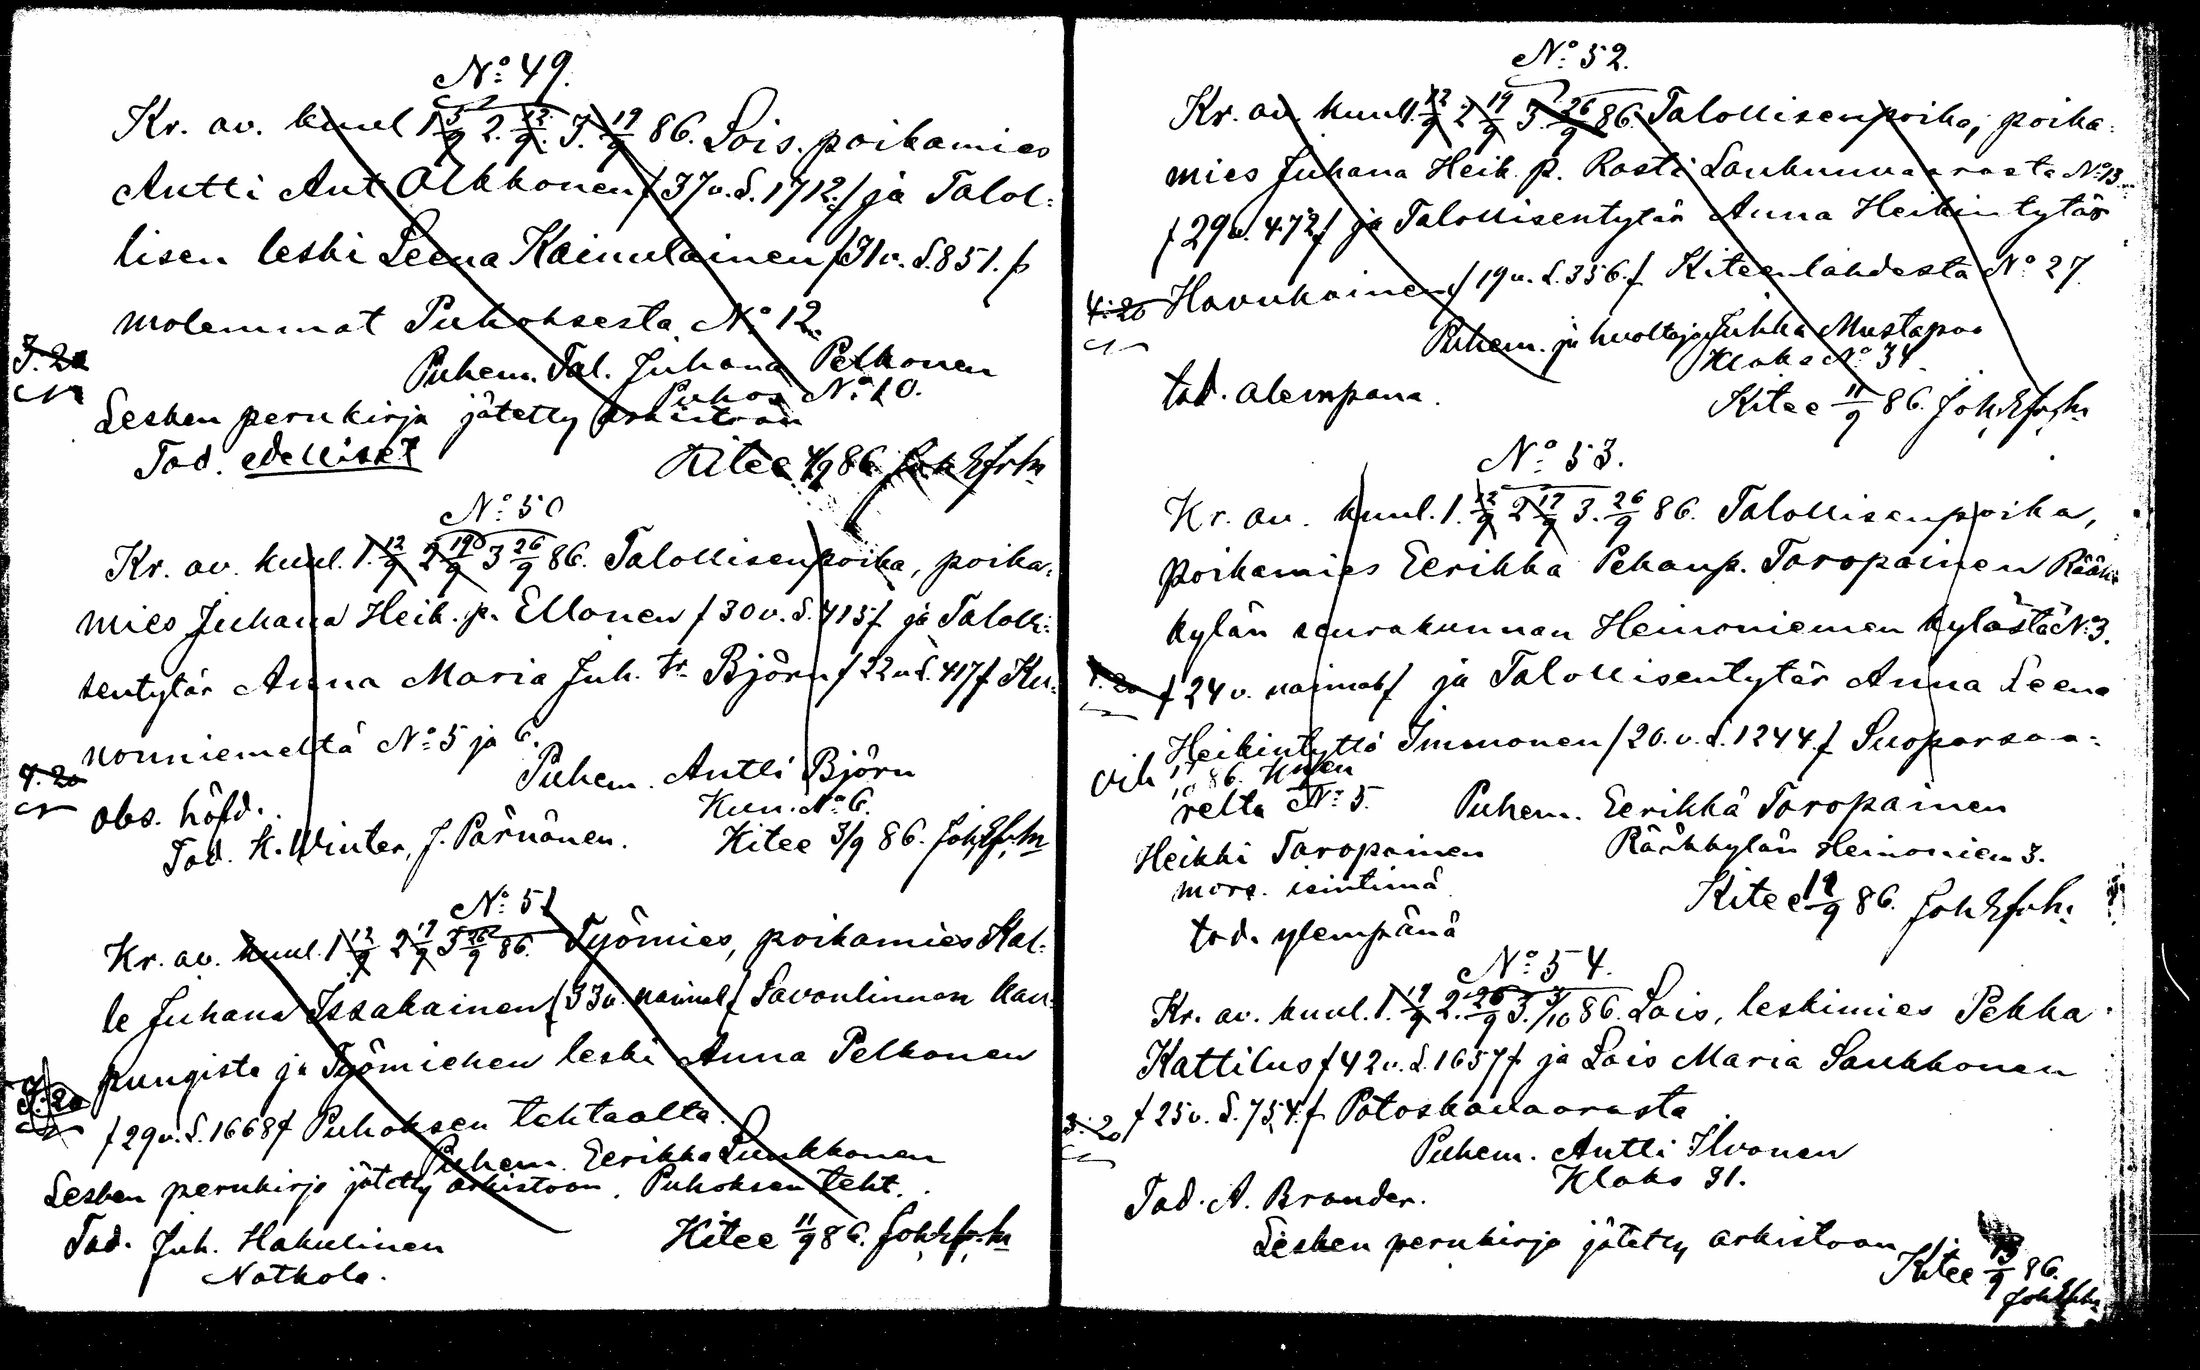 No 49.
Kr. av. kuul 1 5/9 2. 12/9. 3. 19/9 86. Lois. poikamies
Antti Ant Olkkonen /: 37 v. S. 1712 :/ ja Talol:
lisen leski Leena Kainulainen /31 v. S. 851. /:
molemmat Puhoksesta No 12.
3: 20
Puhem. Tal. Juhana Pelkonen
Puhos No 10.
Lesken perukirja jätetty arkistoon
Tod. edelliset
Kitee 4/9 86.
No 50
Kr. av. kuul. 1. 12/9 2 19/9 3 26/9 86. Talollisenpoika, poika:
mies Juhana Heik. p. Ellonen / 30 v. S. 415 / ja Talolli:
sentytär Anna Maria Juh. tr Björn / 22 v S. 417 / Ku:
nonniemeltä No 5 ja 6.
4. 20
Puhem. Antti Björn
Kun. No 6.
obs. höfd.
Tod. K. Winter, J. Pärnänen.
Kitee 3/9 86.
No 51
Kr. av. kuul. 1 12/9 2 19/9 3 26/9 86. Työmies, poikamies Kal:
le Juhana Issakainen / 33 v. / Savonlinnan kau:
pungista ja Työmiehen leski Anna Pelkonen
/ 29 v. S. 1668 / Puhoksen tehtaalta.
Puhem. Eerikka Lunkkonen
Lesken perukirja jätetty arkistoon. Puhoksen teht.
Tod. Juh. Hakulinen
Natkola.
Kitee 11/9 86.
No 52.
Kr. av. kuul. 1 12/9 2 19/9 3 26/9 86. Talollisenpoika, poika:
mies Juhana Heik. p. Rasti Loukunvaarasta No 13
/ 29 v. 472 / ja Talollisentytär Anna Heikin tytär
4: 20 Havukainen / 19 v. S. 356. / Kiteenlahdesta No 27
Puhem. ja huoltaja Jukka Mustapää
No 34
tod. alempana.
Kitee 11/9 86.
No 53.
Kr. av. kuul. 1. 12/9 2 19/9 3. 26/9 86. Talollisenpoika,
poikamies Eerikka Pekanp. Toropainen Rääk:
kylän seurakunnan Heinoniemen kylästä No 3.
/ 24 v. / ja Talollisentytär Anna Leena
Heikintyttö Immonen / 20. v. S. 1244. / Suoparsaa:
relta No 5.
vih
Puhem. Eerikkä Toropainen
Rääkkylän Heinoniem 3.
Heikki Toropainen
mors. isintimä
tod. ylempänä
Kitee 12/9 86.
No 54.
Kr. av. kuul. 1. 19/9 2. 26/9 3. 3/10 86. Lois, leskimies Pekka
Kattilus / 42 v. S. 1657 / ja Lois Maria Saukkonen
3: 20 / 25 v. S. 754. / Potoskavaarasta
Puhem. Antti Ilvonen
31.
Tod. A. Brander.
Lesken perukirja jätetty arkistoon
Kitee 13/9 86.